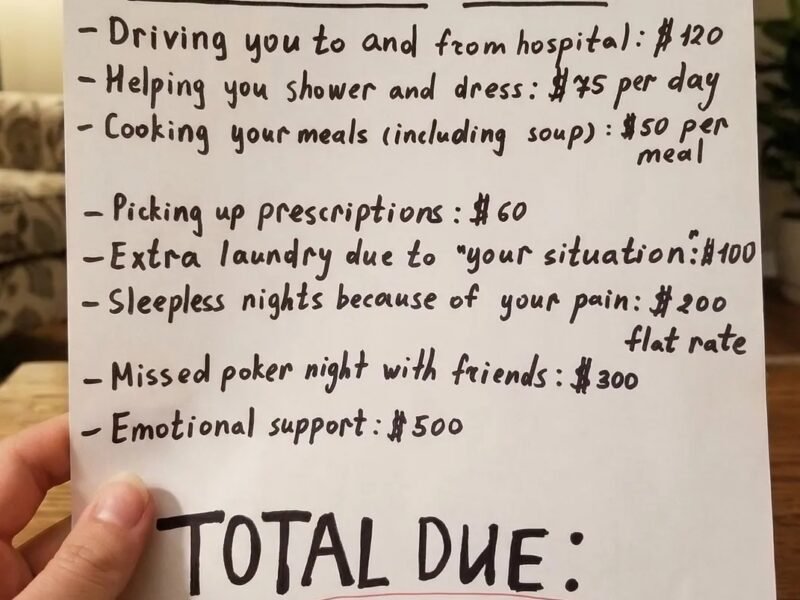 - Driving you to and from hospital: $120
- Helping you shower and dress: $75 per day
- Cooking your meals (including soup): $50 per
meal
- Picking up prescriptions: $60
- Extra laundry due to "your situation": $100
- Sleepless nights because of your pain: $200
flat rate
- Missed poker night with friends: $300
- Emotional support: $500
TOTAL DUE: